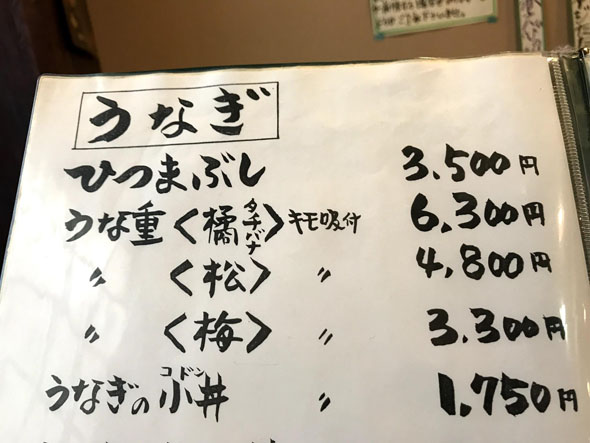 うなぎ
ひつまぶし 3.500円
うな重〈橘タチバナ〉キモ吸付 6,300円
〃 〈松〉 〃 4.800円
〃 〈梅〉 〃 3.300円
うなぎの小丼コドン 〃 1.750円